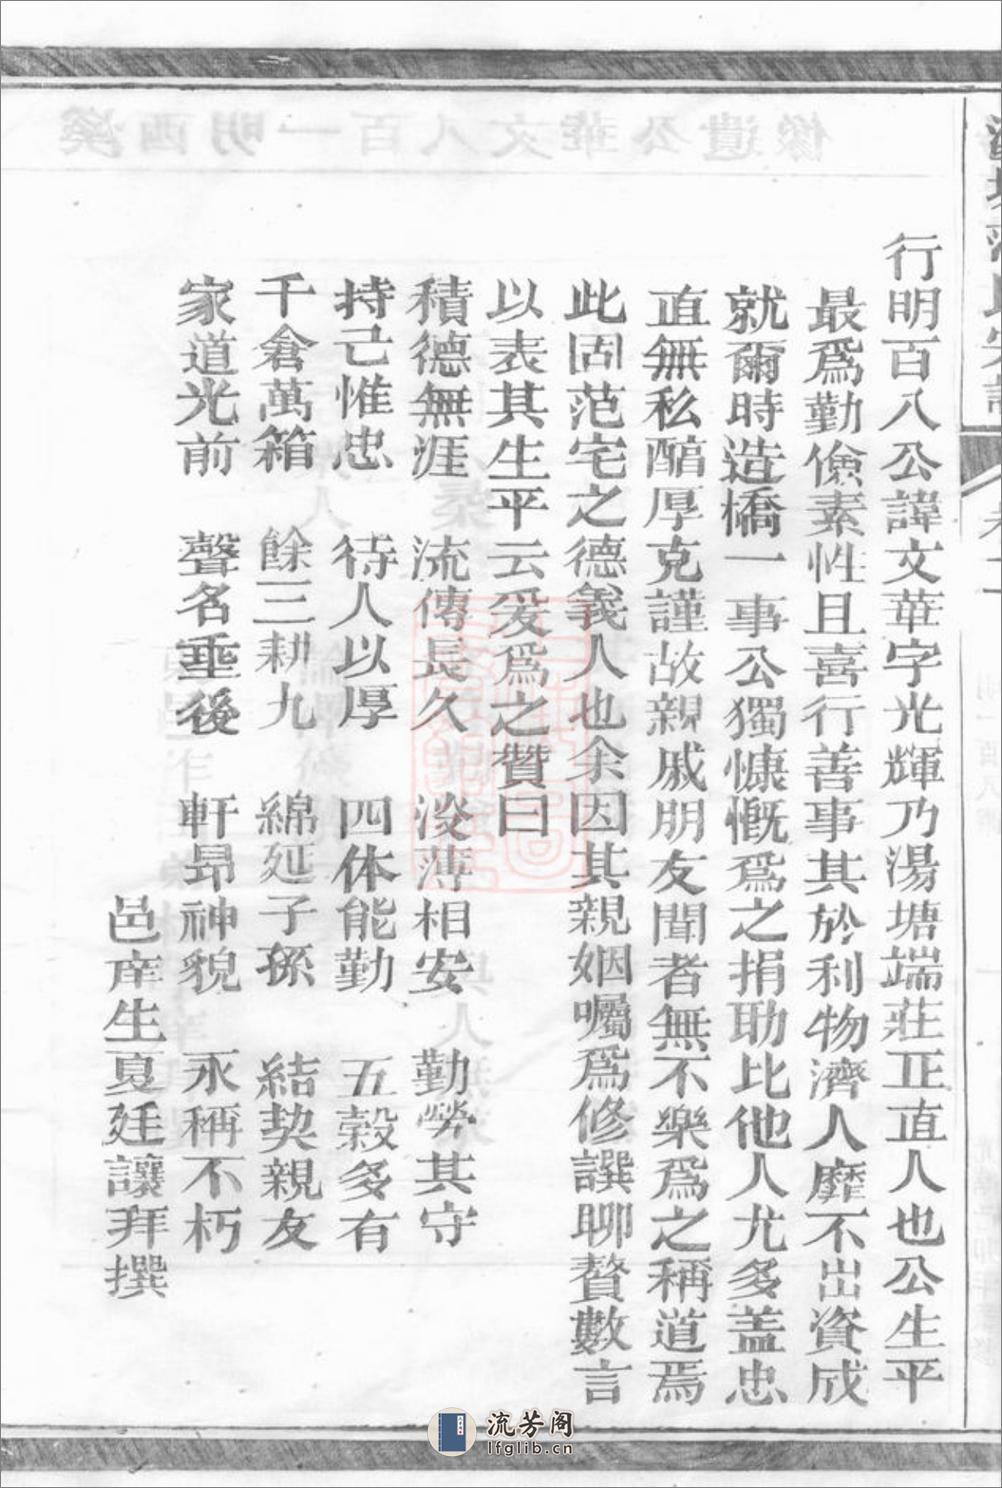 行明百八公諱文華字光輝乃湯塘端莊正直人也公生平
最爲勤儉素性且喜行善事其於利物濟人靡不出資成
就爾時造橋一事公獨慷慨爲之捐助比他人尤多蓋忠
直無私醕厚克謹故親戚朋友聞者無不樂爲之稱道焉
此固范宅之德義人也余因其親姻囑爲修譔聊贅數言
以表其生平云爰爲之贊曰
積德無涯 流傳長久 淡薄相安 勤勞其守
持己惟忠 待人以厚 四体能勤 五穀多有
千倉萬箱 餘三耕九 綿延子孫 結契親友
家道光前 聲名垂後 軒昂神貌 永稱不朽
邑庠生夏廷讓拜撰
流芳阁
lfglib.cn